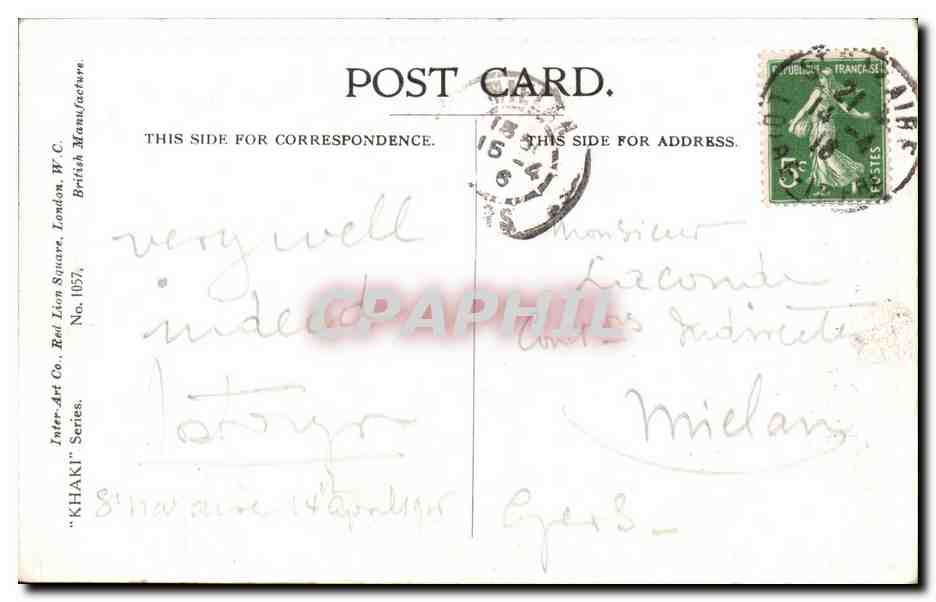 POST CARD.
THIS SIDE FOR CORRESPONDENCE.
THIS SIDE FOR ADDRESS.
Inter-Art Co., Red Lion Square, London, W.C. British Manufacture.
"KHAKI" Series. No. 1057.
very well
indeed
14 april
Monsieur
Indirectes
Mielan
Gers
REPUBLIQUE FRANÇAISE
POSTES
5c
21
14 - 4
16
AIRE
13
15 - 4
CPAPHIL